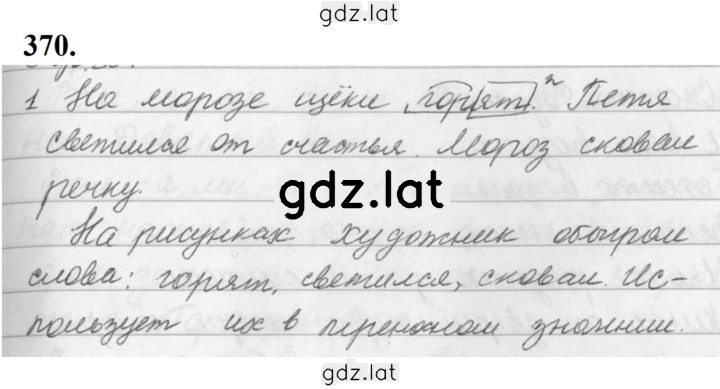 gdz.lat
370.
1 На морозе щёки горят.² Петя
светился от счастья. Мороз сковал
речку.
gdz.lat
На рисунках художник обыграл
слова: горят, светился, сковал. Ис-
пользует их в переносном значении.
gdz.lat